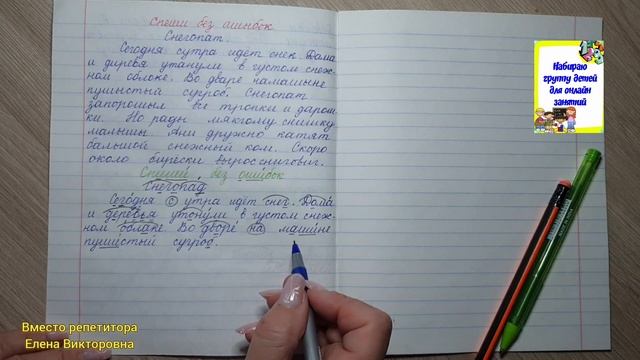 Спеши без ашыбок
Снегопат.
Сегодня сутра идёт снек. Дома
и диревя утанули в густом снеж-
ном облоке. Во дваре намашыне
пушыстый сугроб. Снегопат
запорошыл все тропки и даром-
ки. Но рады мяхгому снишку
малышы. Ани дружно катят
балшой снежный ком. Скоро
около бирёски вырос сниговиг.
Спеши, без ошибок
Снегопад
Сегодня с утра идёт снег. Дома
и деревья утонули в густом снеж-
ном облаке. Во дворе на машине
пушистый сугроб.
Набираю
группу детей
для онлайн
занятий
Вместо репетитора
Елена Викторовна